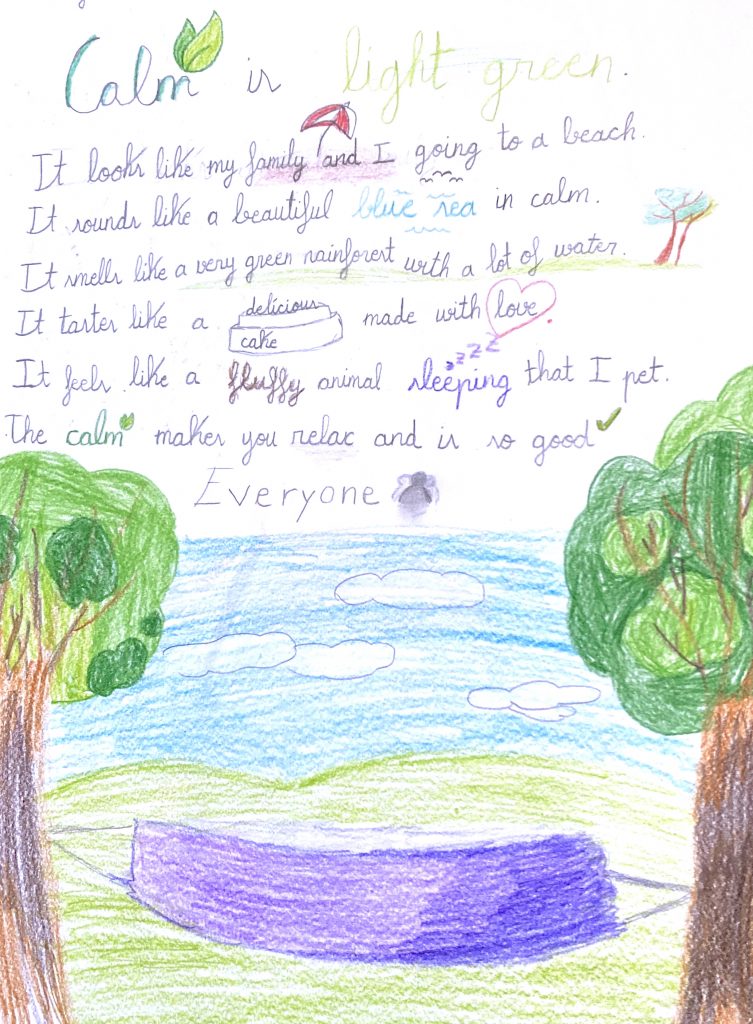 Calm is light green.
It looks like my family and I going to a beach.
It sounds like a beautiful blue sea in calm.
It smells like a very green rainforest with a lot of water.
It tastes like a delicious cake made with love.
It feels like a fluffy animal sleeping zzzz that I pet.
The calm makes you relax and is so good
Everyone